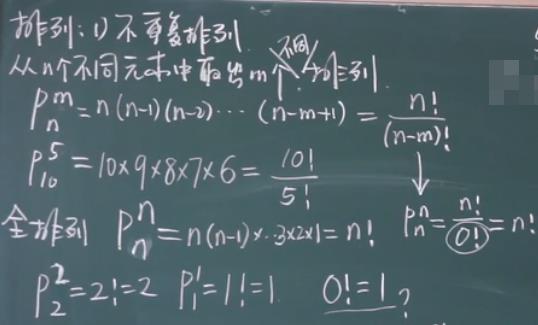 排列:1)不重复排列
从n个不同元素中取出m个不同排列
P_n^m = n(n-1)(n-2)⋯(n-m+1) = n!/(n-m)!
P_10^5 = 10×9×8×7×6 = 10!/5!
全排列 P_n^n = n(n-1)×⋯3×2×1 = n!
↓ P_n^n = n!/0! = n!
P_2^2 = 2! = 2 P_1^1 = 1! = 1 0! = 1?